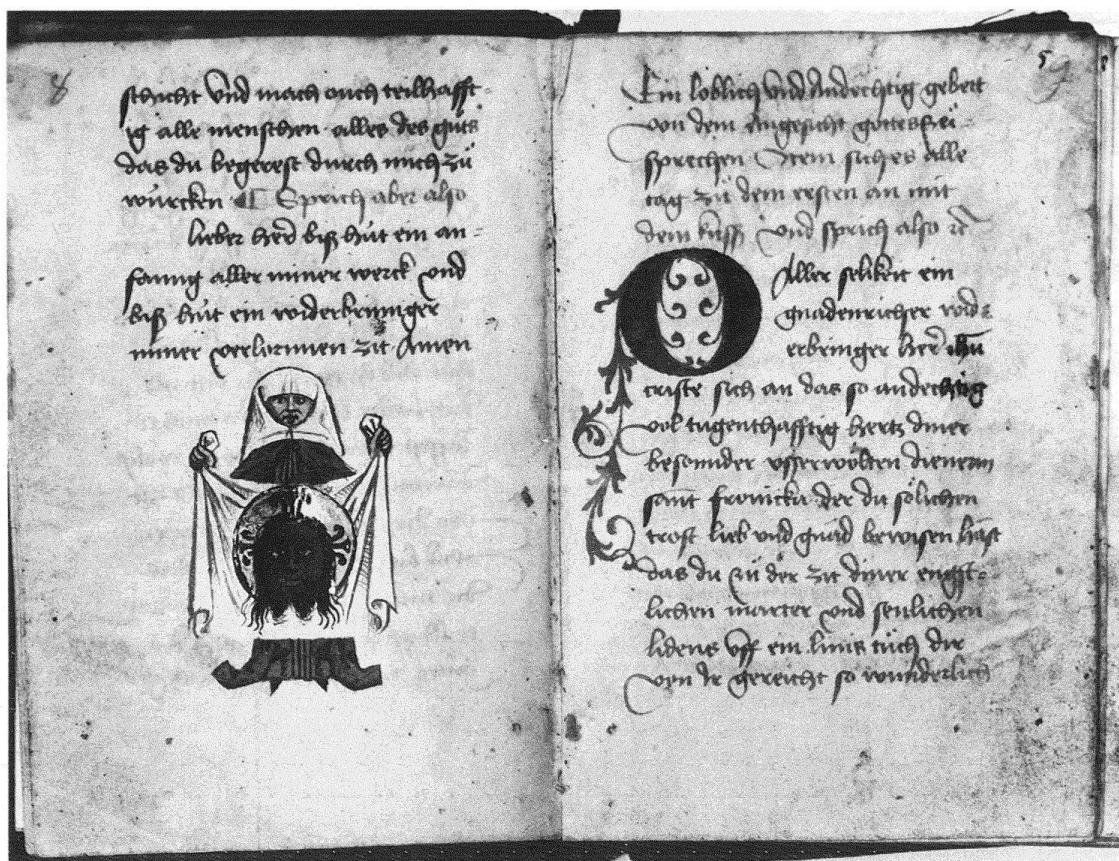 8
schicht vnd mach ouch teilhafft-
ig alle menschen alles des guts
das du begerest durch mich zů
würcken ¶ Sprich aber also
lieber her̄ biß hüt ein an-
fanng aller miner werck vnd
biß hüt ein widerbringer
miner verlornnen zit Amen
5
Ein loblich vnd andechtig gebett
von dem angesicht gottes
sprechen Item sich es alle
tag zů dem ersten an mit
dem kuss vnd sprich also
O Aller selikeit ein
gnadenricher wid-
erbringer her̄ ihū
criste sich an das so andechtig
vol tugenthafftig hertz diner
besonnder vsserwölten dienerin
sant fronicka der du sölichen
trost lieb vnd gnad bewisen hast
das du zů der zit diner engst-
lichen marter vnd senlichen
lidens vff ein linis tůch dir
von Ir gereicht so wunderlich